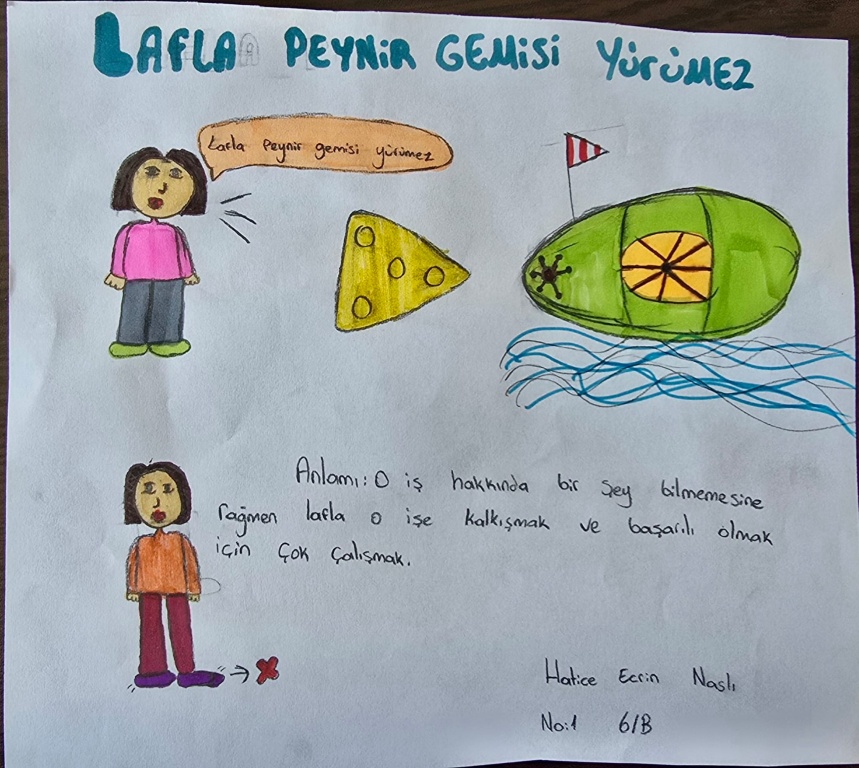 LAFLA PEYNİR GEMİSİ YÜRÜMEZ
Lafla Peynir gemisi yürümez
Anlamı: O iş hakkında bir şey bilmemesine
rağmen lafla o işe kalkışmak ve başarılı olmak
için çok çalışmak.
Hatice Ecrin Naslı
No:1 6/B